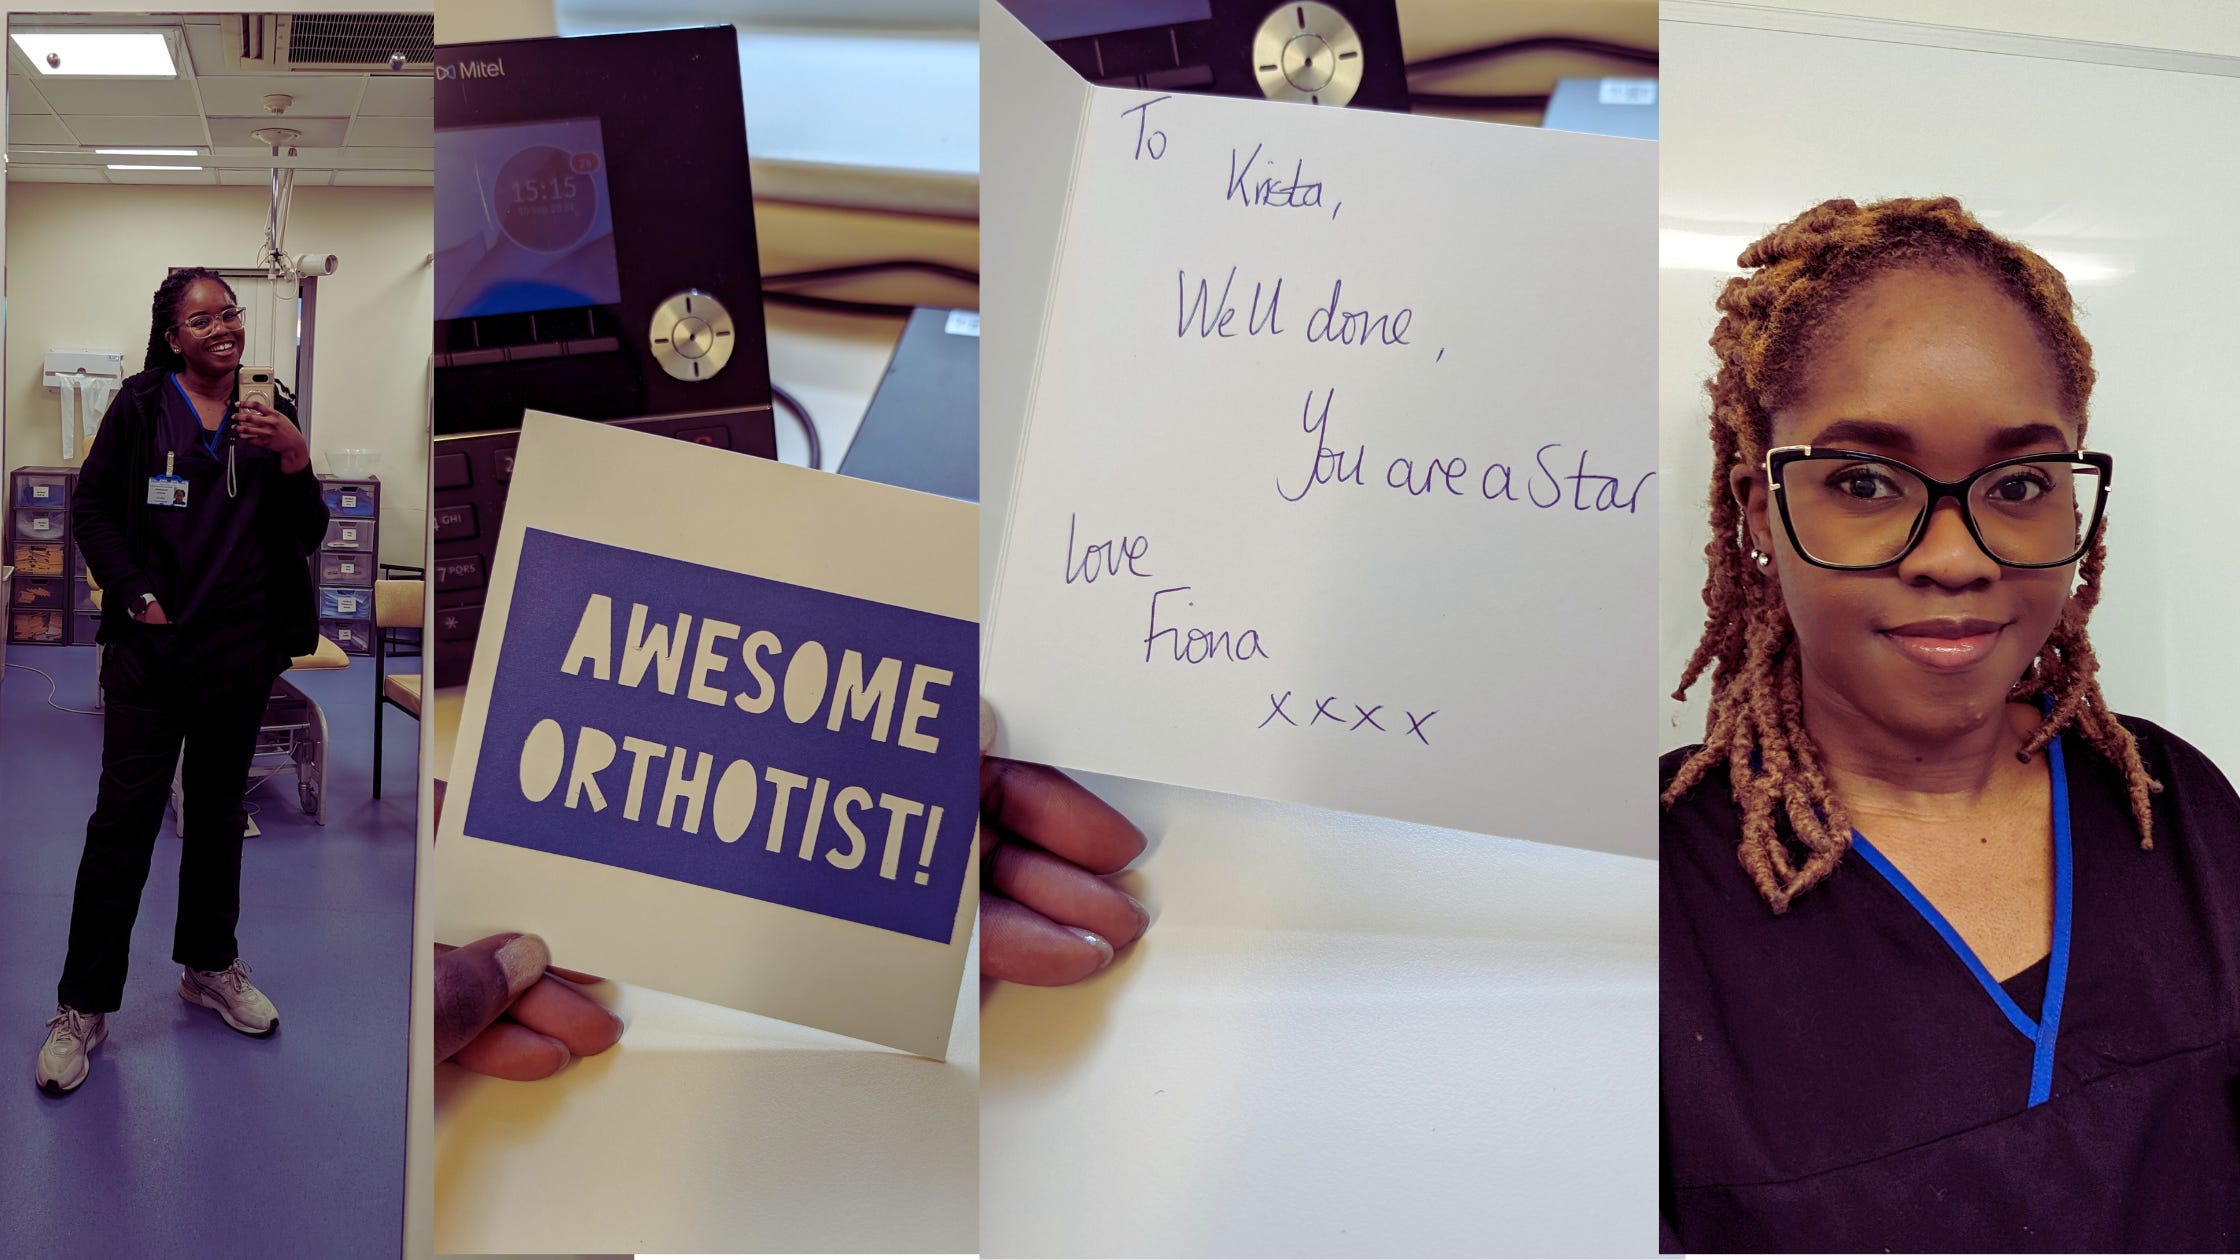 Mitel
15:15
AWESOME
ORTHOTIST!
GHI
7 PQRS
*
To
Krista,
Well done,
You are a Star
love
Fiona
x x x x